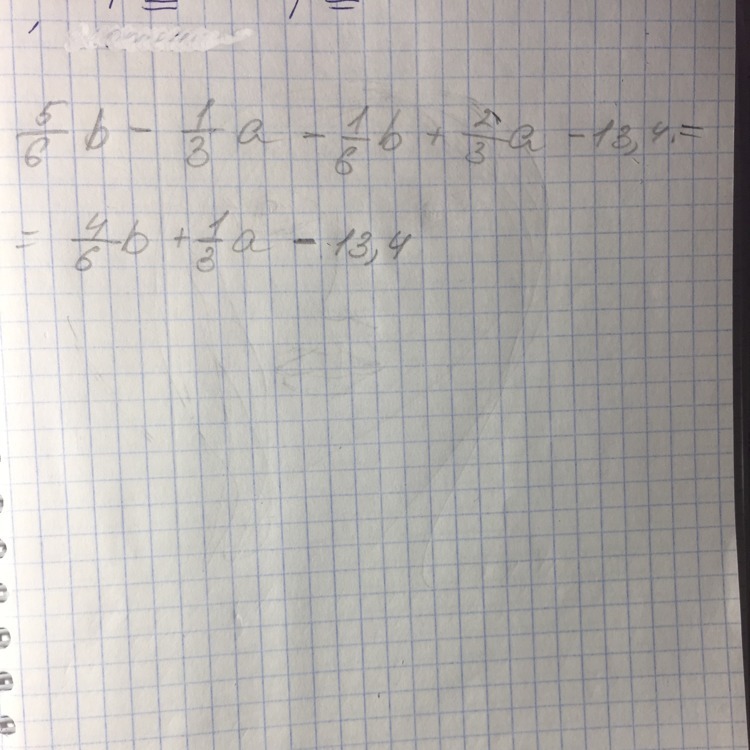 5/6 b - 1/3 a - 1/6 b + 2/3 a - 13,4. =
= 4/6 b + 1/3 a - 13,4